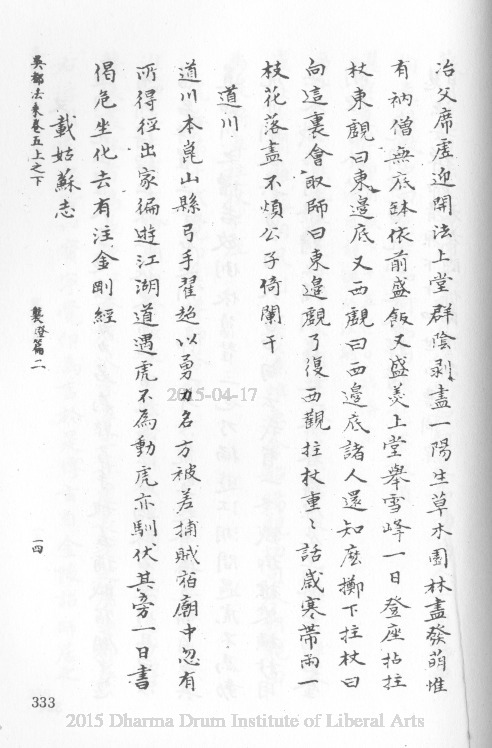 冶父席虛迎開法上堂群陰剥盡一陽生草木園林盡發萌惟
有衲僧無底鉢依前盛飯又盛羮上堂舉雪峰一日登座拈拄
杖東覰曰東邊底又西覰曰西邊底諸人還知麽擲下拄杖曰
向這裏會取師曰東邊覰了復西觀拄杖重〻話歲寒帶雨一
枝花落盡不煩公子倚闌干
道川
道川本崑山縣弓手翟超以勇力名方被差捕賊宿廟中忽有
所得徑出家徧遊江湖道遇虎不為動虎亦馴伏其旁一日書
偈危坐化去有注金剛經
載姑蘇志
吳都法乘卷五上之下
契證篇二
一四
333
2015-04-17
2015 Dharma Drum Institute of Liberal Arts